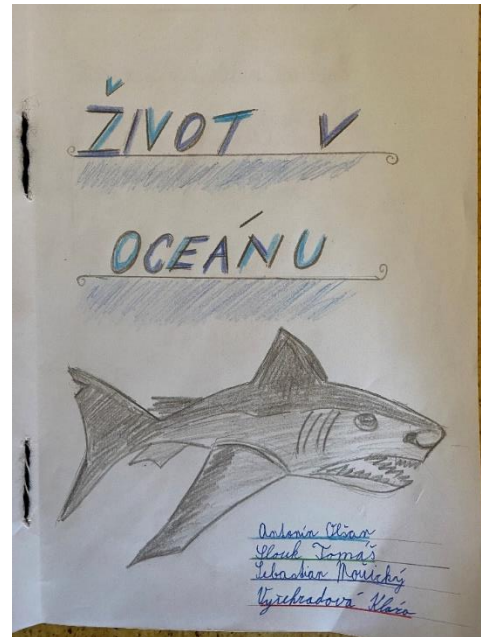 ŽIVOT V
OCEÁNU
Antonín Olšan
Slouk Tomáš
Sebastian
Vyšehradová Klára